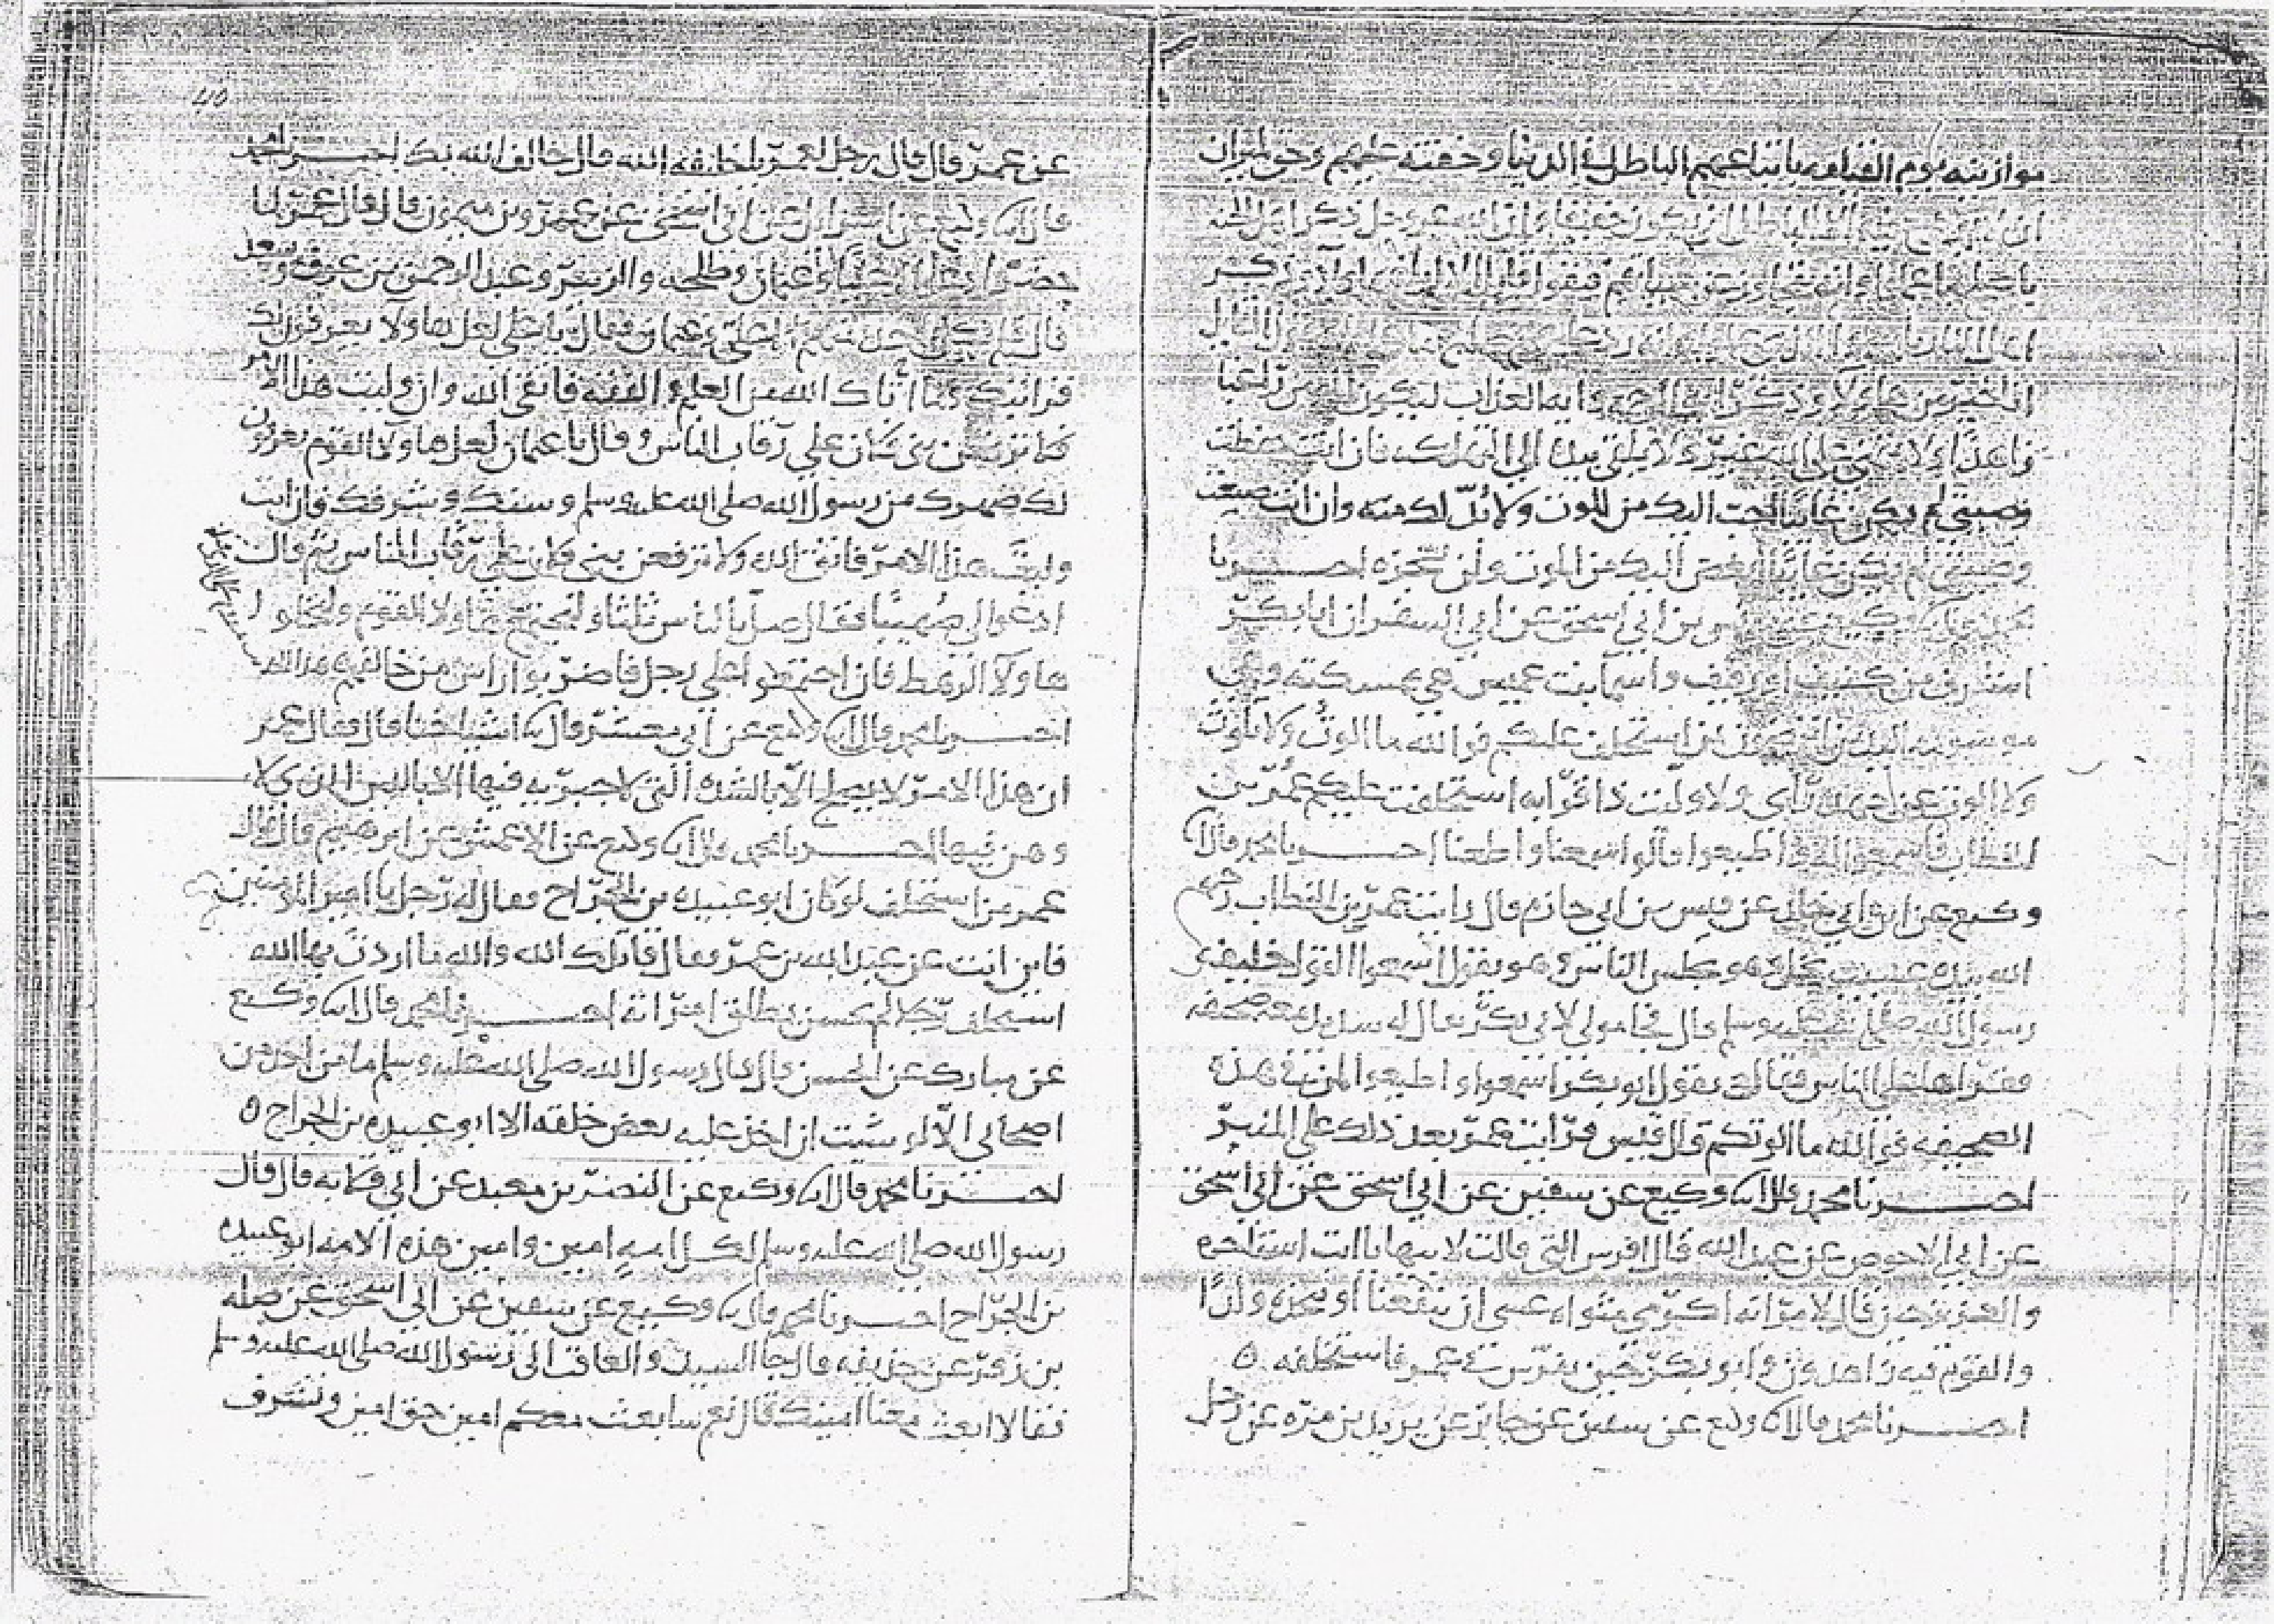 موازينه يوم القيامه باتباعهم الباطل في الدنيا وخفته عليهم وحق لميزان
ان لا يوضع فيه الا الباطل ان يكون خفيفا وان الله عز وجل ذكر اهل الجنه
باحسن ما عملوا وانه تجاوز عن سياتهم فيقول قايل الا ابلغ هاولا وذكر
اهل النار باسوا الذي عملوا وانه رد عليهم صالح ما عملوا فيقول القايل
انا خير من هاولا وذكر ايه الرحمه وايه العذاب ليكون المومن راغبا
راهبا ولا يتمنى على الله غير الحق ولا يلقي بيده الى التهلكه فان انت حفظت
وصيتي لم يكن غايبا احب اليك من الموت ولا بد لك منه وان انت ضيعت
وصيتي لم يكن غايبا ابغض اليك من الموت ولن تعجزه اخبرنا
محمد قال وكيع عن يونس بن ابي اسحق عن ابي السفر ان ابا بكر
اشرف من كنيف واسما بنت عميس هي ممسكته وهي
موشومه اليدين استخلف عليكم فوالله ما الوت ولا تلوت
ولا الوت عن جهد راي ولا وليت ذا قرابه استخلفت عليكم عمر بن
الخطاب فاسمعوا له واطيعوا قالوا سمعنا واطعنا اخبرنا محمد قال
وكيع عن ابن ابي خالد عن قيس بن ابي حازم قال رايت عمر بن الخطاب رحمه
الله بيده عسيب نخل وهو يجلس الناس وهو يقول اسمعوا لقول خليفه
رسول الله صلى الله عليه وسلم قال فجا مولى لابي بكر يقال له شديد معه صحيفه
فقراها على الناس فقال يقول ابو بكر اسمعوا واطيعوا لمن في هذه
الصحيفه فوالله ما الوتكم قال قيس فرايت عمر بعد ذلك على المنبر
اخبرنا محمد قال وكيع عن سفين عن ابي اسحق عن ابي اسحق
عن ابي الاحوص عن عبد الله قال افرس التي قالت لابيها يا ابت استاجره
والعزيز حين قال لامراته اكرمي مثواه عسى ان ينفعنا او نتخذه ولدا
والقوم فيه زاهدون وابو بكر حين تفرس في عمر فاستخلفه ه
اخبرنا محمد قال وكيع عن سفين عن جابر عن يزيد بن مره عن رجل
عن عمر قال قال رجل لعمر يا خليفه الله قال خالف الله بك اخبرنا محمد
قال وكيع عن اسرائيل عن ابي اسحق عن عمرو بن ميمون قال قال عمر لما
حضر ادعوا لي عليا وعثمان وطلحه والزبير وعبد الرحمن بن عوف وسعد
قال فلم يكلم احد منهم الا علي وعثمان فقال يا علي لعل هاولا يعرفون لك
قرابتك وما اتاك الله من العلم والفقه فاتقى الله وان وليت هذا الامر
فلا ترفعن بني فلان على رقاب الناس وقال يا عثمان لعل هاولا القوم يعرفون
لك صهرك من رسول الله صلى الله عليه وسلم وسنك وشرفك فان انت
وليت هذا الامر فاتق الله ولا ترفعن بني فلان على رقاب الناس ثم قال
ادعوا لي صهيبا فقال صل بالناس ثلثا وليجتمع هاولا القوم وليخلوا
هاولا الرهط فان اجتمعوا على رجل فاضربوا راس من خالفهم
اخبرنا محمد قال وكيع عن ابي معشر قال اشياخنا قال فقال عمر
ان هذا الامر لا يصلح الا بالشده التي لا جبريه فيها الا باللين الذي لا
وهن فيها اخبرنا محمد قال وكيع عن الاعمش عن ابرهيم قال قال
عمر من استخلف لو كان ابو عبيده بن الجراح فقال له رجل يا امير المومنين
فاين انت عن عبد الله بن عمر فقال قاتلك الله والله ما اردت بها الله
استخلف رجلا لم يحسن يطلق امراته اخبرنا محمد قال وكيع
عن مبارك عن الحسن قال قال رسول الله صلى الله عليه وسلم ما من احد من
اصحابي الا لو شيت ان اخذ عليه بعض خلقه الا ابو عبيده بن الجراح ه
اخبرنا محمد قال وكيع عن النضر بن معبد عن ابي قلابه قال قال
رسول الله صلى الله عليه وسلم لكل امه امين وامين هذه الامه ابو عبيده
بن الجراح اخبرنا محمد قال وكيع عن سفين عن ابي اسحق عن صله
بن زفر عن حذيفه قال جا السيد والعاقب الى رسول الله صلى الله عليه وسلم
فقالا ابعث معنا امينك قال نعم سابعث معكم امين حق امين ونتشرف